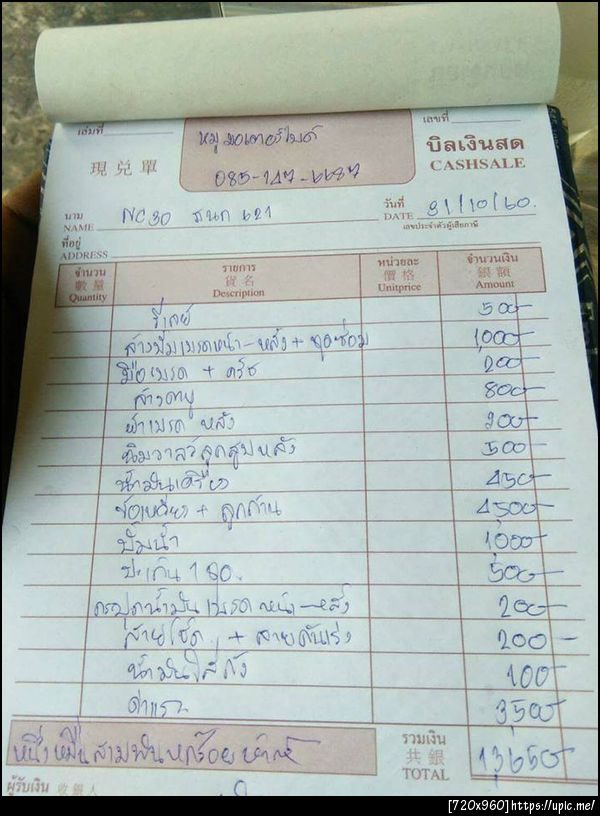 เล่มที่
เลขที่
หมู มอเตอร์ไบค์
現兑單
085-147-6687
บิลเงินสด
CASHSALE
นาม
NAME
NC30
621
วันที่
DATE
31/10/60.
เลขประจำตัวผู้เสียภาษี
ที่อยู่
ADDRESS
จำนวน รายการ หน่วยละ จำนวนเงิน
數量 貨名 價格 銀額
Quantity Description Unitprice Amount
รีเลย์ 500-
ล้างปั๊มเบรคหน้า-หลัง + ชุดซ่อม 1,000-
มือเบรค + ครัช 200-
ล้างคาบู 800-
ผ้าเบรค หลัง 200-
ลูกสูบหลัง 500-
น้ำมันเครื่อง 450
ข้อเหวี่ยง + ลูกก้าน 4,500-
ปั๊มน้ำ 1,000-
ปะเก็น 1 ชุด. 500-
กระปุกน้ำมันเบรค หน้า-หลัง 200-
สายโช๊ค + สายคันเร่ง 200-
น้ำมันใส่ถัง 100-
ค่าแรง 3,500-
หนึ่งหมื่นสามพันหกร้อยห้าสิบ
รวมเงิน
共銀
TOTAL
13,650-
ผู้รับเงิน 收銀人
[720x960]https://upic.me/